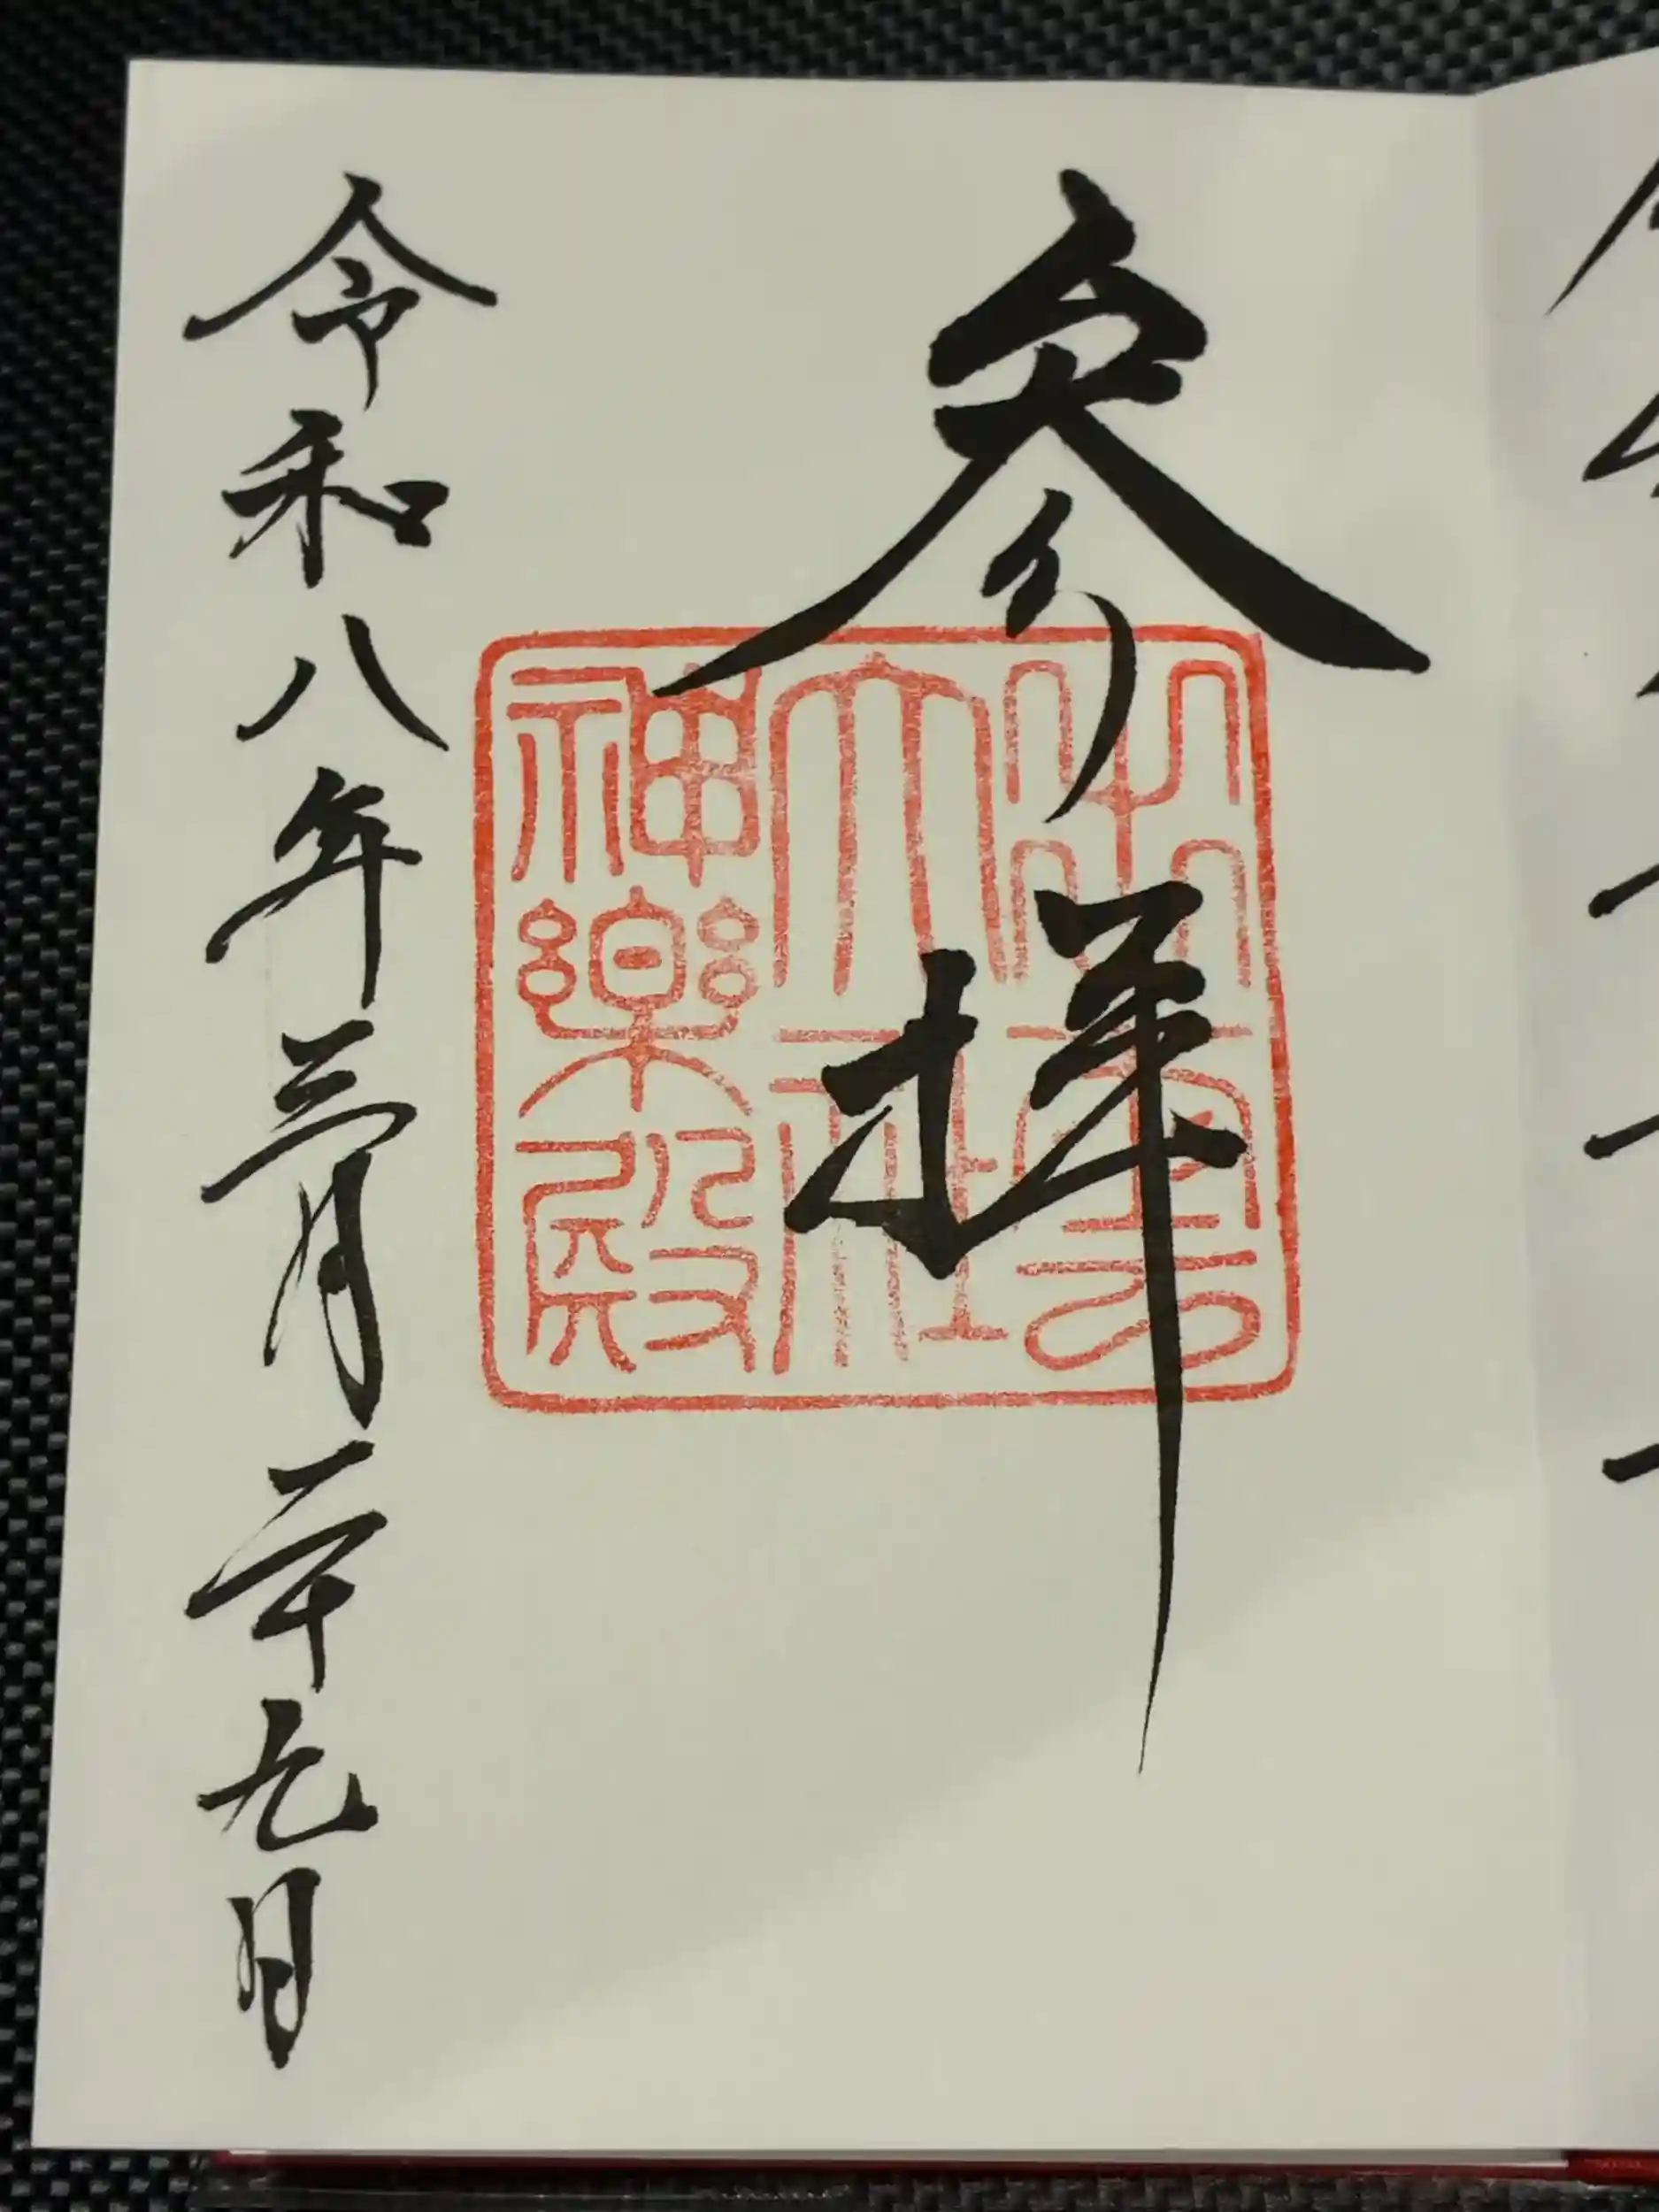 参拝
出雲大社神楽殿
令和八年三月二十九日